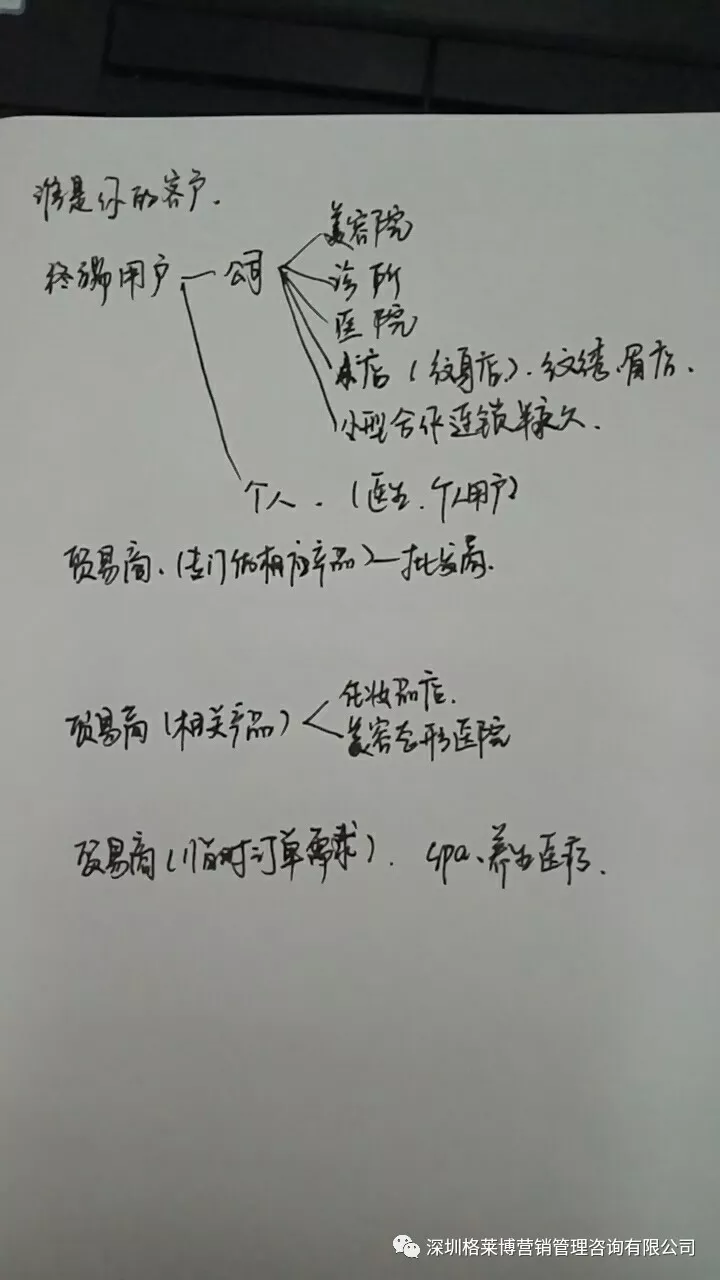 谁是你的客户.
终端用户 — 公司
美容院
诊所
医院
店 (纹身店). 纹绣. 眉店.
小型合作连锁
个人. (医生. 个人用户)
贸易商. (专门做相应产品) — 批发商.
贸易商 (相关产品)
化妆品店.
美容整形医院
贸易商 (临时订单需求). spa、养生医疗.
深圳格莱博营销管理咨询有限公司